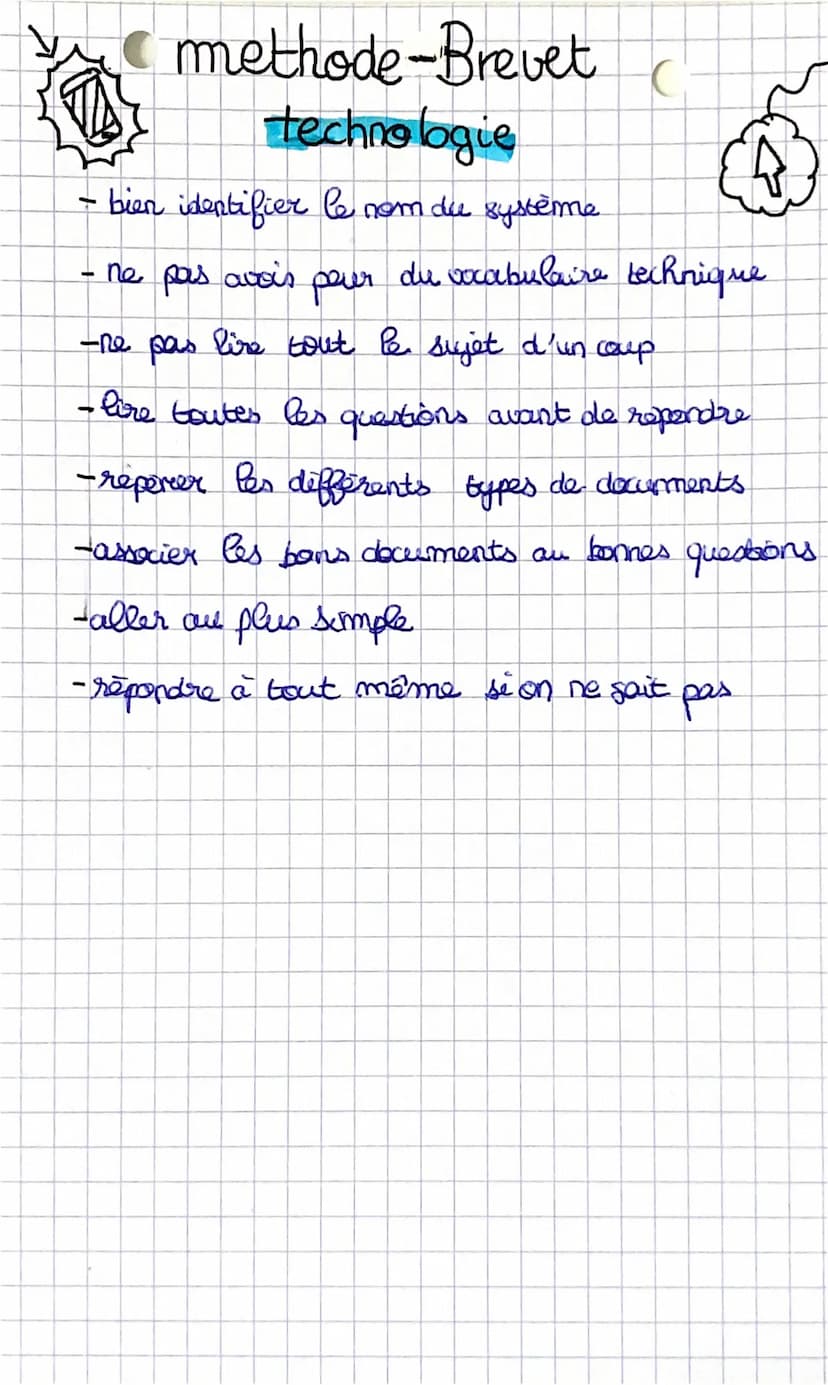 methode-Brevet
technologie
- bien identifier le nom du système
- ne pas avois peur du vocabulaire technique
-ne pas lire tout le sujet d'un coup
-lire toutes les questions avant de répondre
-réperer les différents types de documents
-associer les bons documents au bonnes questions
-aller au plus simple
-répondre à tout même si on ne sait pas